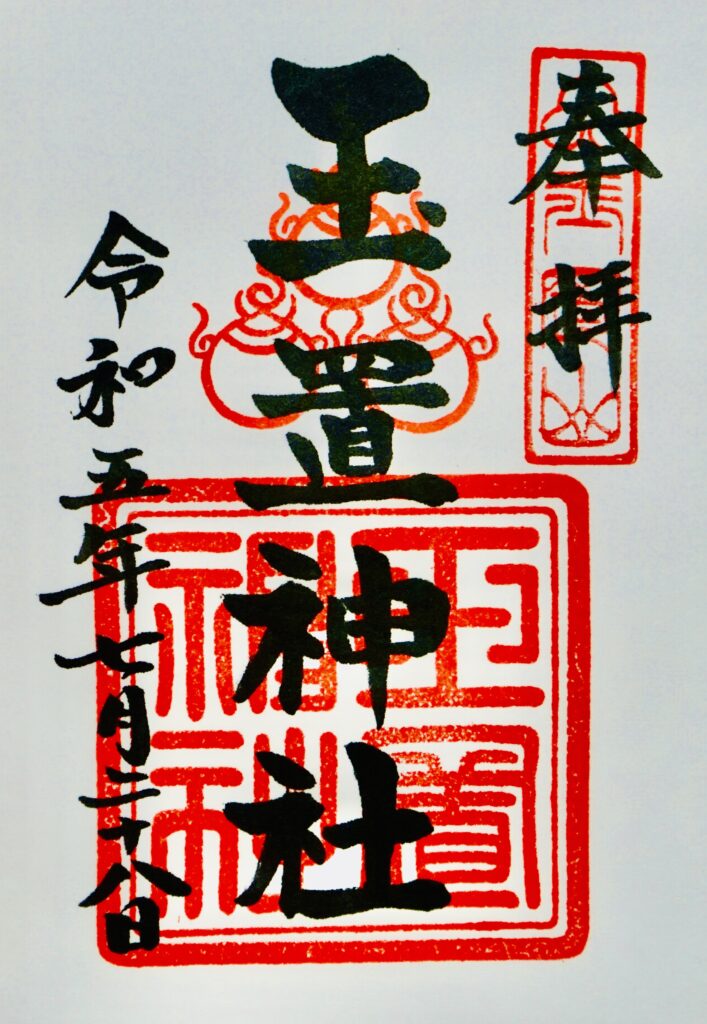 奉拝
玉置神社
令和五年七月二十八日
玉置神社